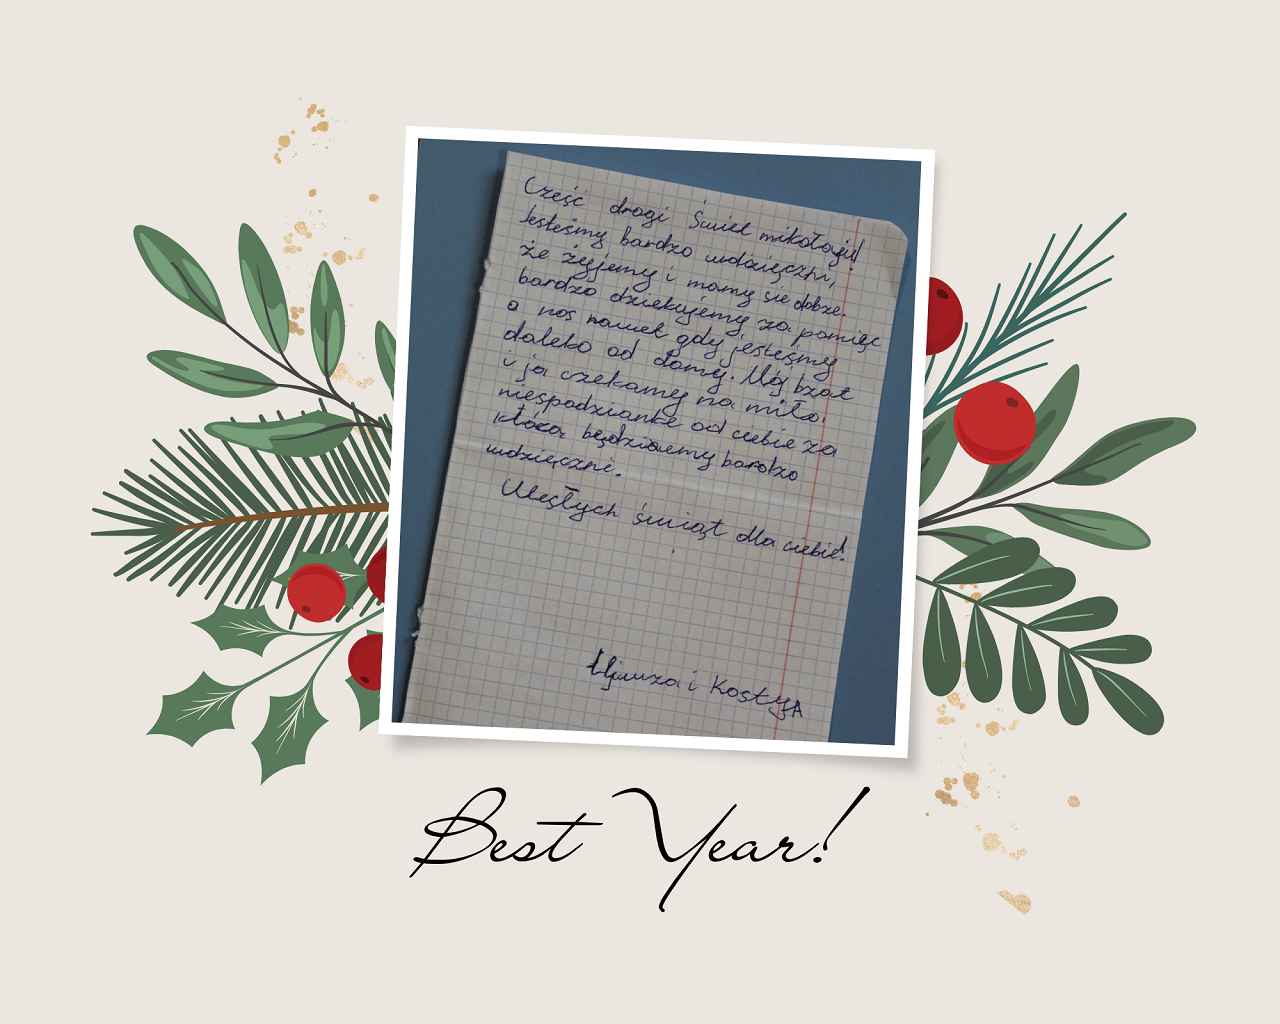 Cześć drogi Świeł mikołaju!
Jesteśmy bardzo wdzięczni,
że żyjemy i mamy się dobże.
bardzo dziekujemy za pomięc
o nos nawet gdy jesteśmy
daleko od domy. Mój bzat
i ja czekamy na miła
niespodzianke od ciebie za
którą będziaemy bardzo
wdzięczni.
Wesłych świąt dla ciebie!
i KostyA
Best Year!